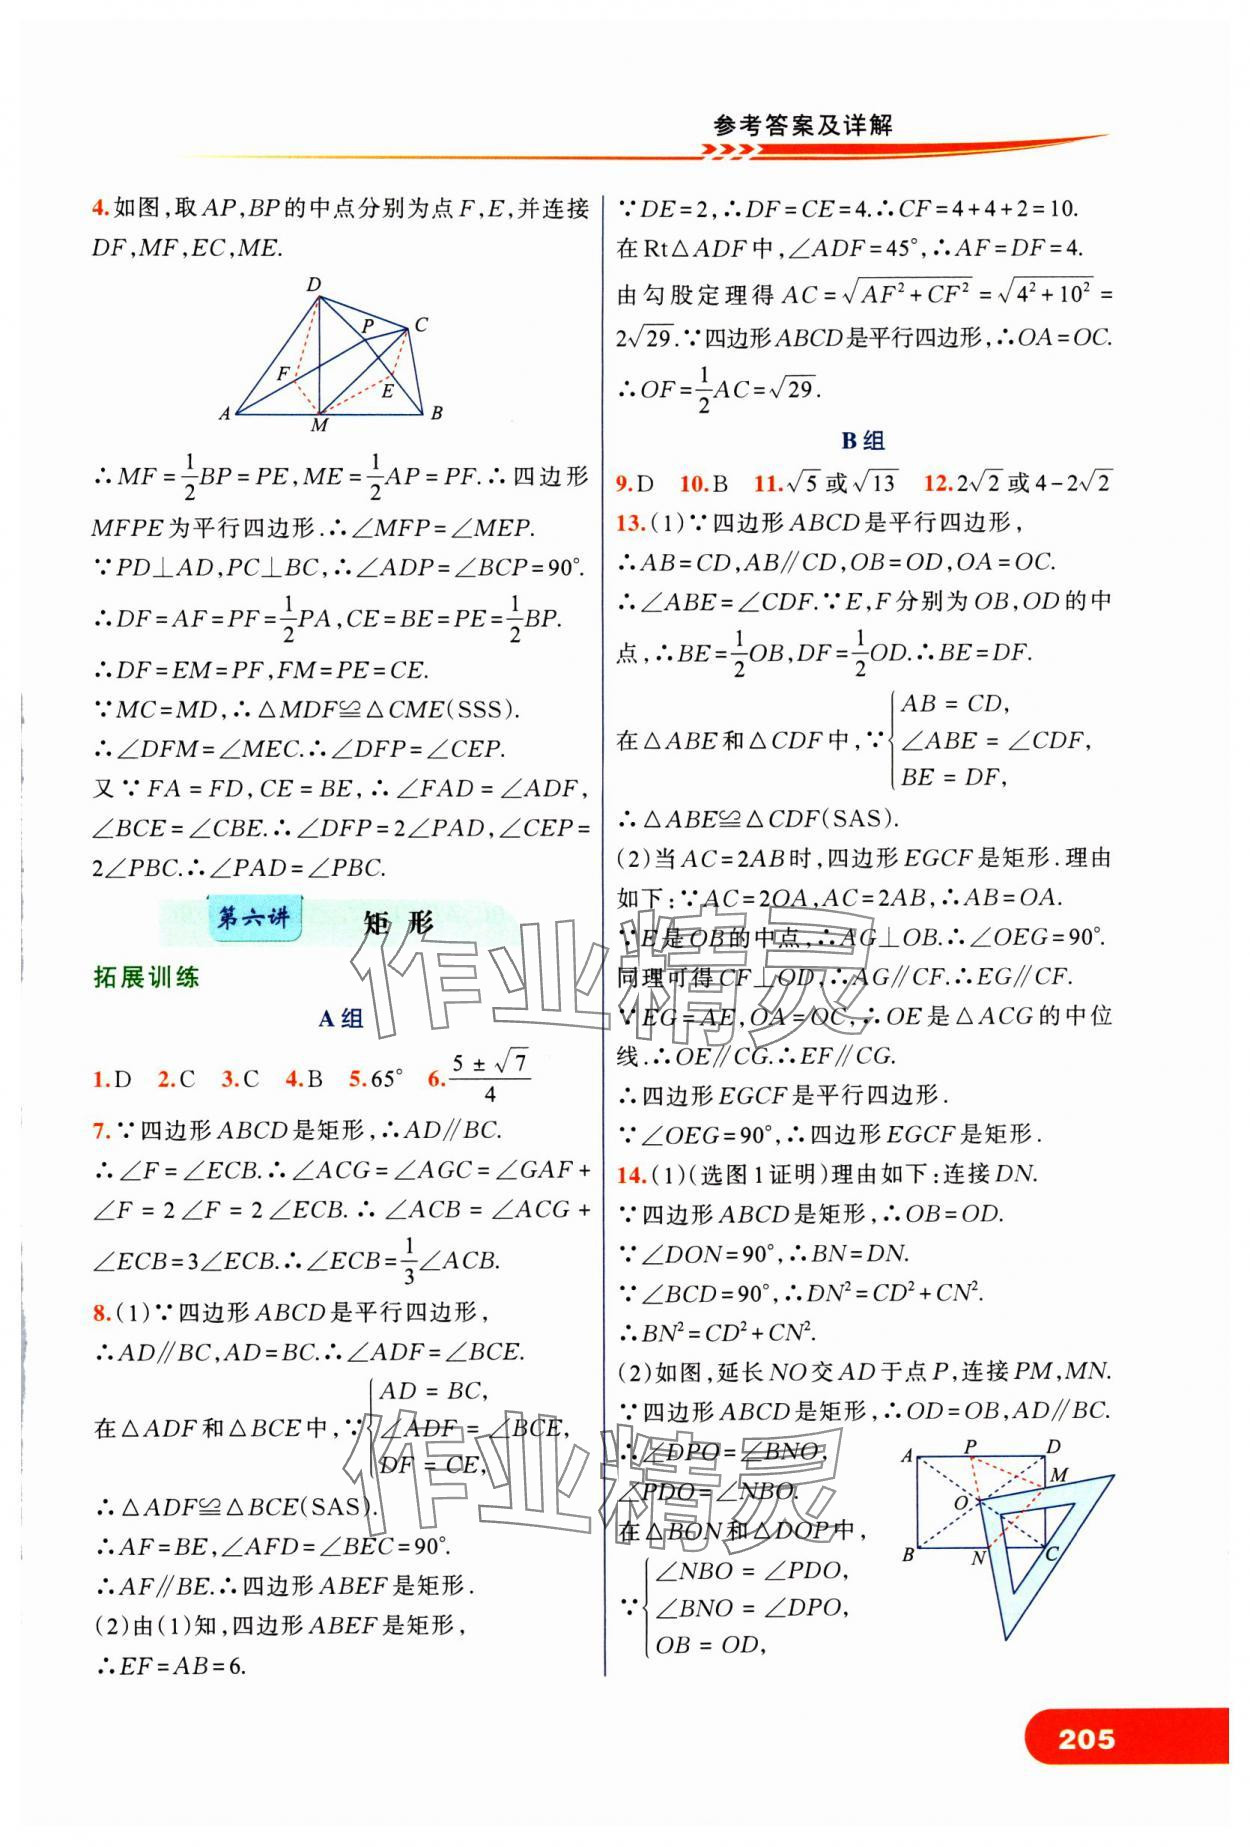 参考答案及详解
4.如图,取AP,BP的中点分别为点F,E,并连接
DF,MF,EC,ME.
D
P
C
F
E
A
M
B
∴MF=1/2BP=PE,ME=1/2AP=PF.∴四边形
MFPE为平行四边形.∴∠MFP=∠MEP.
∵PD⊥AD,PC⊥BC,∴∠ADP=∠BCP=90°.
∴DF=AF=PF=1/2PA,CE=BE=PE=1/2BP.
∴DF=EM=PF,FM=PE=CE.
∵MC=MD,∴△MDF≌△CME(SSS).
∴∠DFM=∠MEC.∴∠DFP=∠CEP.
又∵FA=FD,CE=BE,∴∠FAD=∠ADF,
∠BCE=∠CBE.∴∠DFP=2∠PAD,∠CEP=
2∠PBC.∴∠PAD=∠PBC.
第六讲 矩形
拓展训练
A组
1.D 2.C 3.C 4.B 5.65° 6.(5±√7)/4
7.∵四边形ABCD是矩形,∴AD∥BC.
∴∠F=∠ECB.∴∠ACG=∠AGC=∠GAF+
∠F=2∠F=2∠ECB.∴∠ACB=∠ACG+
∠ECB=3∠ECB.∴∠ECB=1/3∠ACB.
8.(1)∵四边形ABCD是平行四边形,
∴AD∥BC,AD=BC.∴∠ADF=∠BCE.
AD=BC,
在△ADF和△BCE中,∵{∠ADF=∠BCE,
DF=CE,
∴△ADF≌△BCE(SAS).
∴AF=BE,∠AFD=∠BEC=90°.
∴AF∥BE.∴四边形ABEF是矩形.
(2)由(1)知,四边形ABEF是矩形,
∴EF=AB=6.
∵DE=2,∴DF=CE=4.∴CF=4+4+2=10.
在Rt△ADF中,∠ADF=45°,∴AF=DF=4.
由勾股定理得AC=√(AF²+CF²)=√(4²+10²)=
2√29.∵四边形ABCD是平行四边形,∴OA=OC.
∴OF=1/2AC=√29.
B组
9.D 10.B 11.√5或√13 12.2√2或4-2√2
13.(1)∵四边形ABCD是平行四边形,
∴AB=CD,AB∥CD,OB=OD,OA=OC.
∴∠ABE=∠CDF.∵E,F分别为OB,OD的中
点,∴BE=1/2OB,DF=1/2OD.∴BE=DF.
AB=CD,
在△ABE和△CDF中,∵{∠ABE=∠CDF,
BE=DF,
∴△ABE≌△CDF(SAS).
(2)当AC=2AB时,四边形EGCF是矩形.理由
如下:∵AC=2OA,AC=2AB,∴AB=OA.
∵E是OB的中点,∴AG⊥OB.∴∠OEG=90°.
同理可得CF⊥OD,∴AG∥CF.∴EG∥CF.
∵EG=AE,OA=OC,∴OE是△ACG的中位
线.∴OE∥CG.∴EF∥CG.
∴四边形EGCF是平行四边形.
∵∠OEG=90°,∴四边形EGCF是矩形.
14.(1)(选图1证明)理由如下:连接DN.
∵四边形ABCD是矩形,∴OB=OD.
∵∠DON=90°,∴BN=DN.
∵∠BCD=90°,∴DN²=CD²+CN².
∴BN²=CD²+CN².
(2)如图,延长NO交AD于点P,连接PM,MN.
∵四边形ABCD是矩形,∴OD=OB,AD∥BC.
∴∠DPO=∠BNO,
∠PDO=∠NBO.
在△BON和△DOP中,
∠NBO=∠PDO,
∵{∠BNO=∠DPO,
OB=OD,
A
P
D
M
O
B
N
C
作业精灵
作业精灵
205